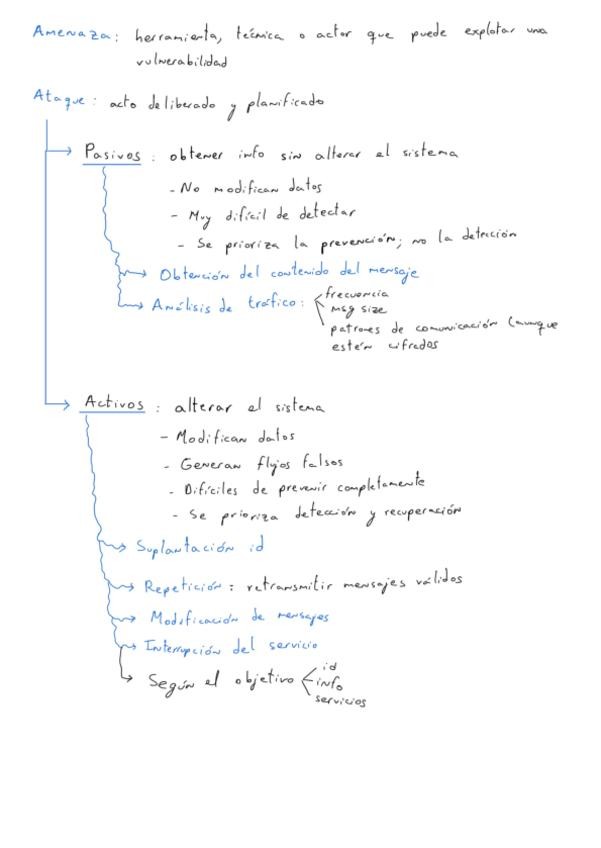 Amenaza: herramienta, técnica o actor que puede explotar una
vulnerabilidad
Ataque: acto deliberado y planificado
Pasivos: obtener info sin alterar el sistema
- No modifican datos
- Muy difícil de detectar
- Se prioriza la prevención; no la detección
Obtención del contenido del mensaje
Análisis de tráfico:
frecuencia
msg size
patrones de comunicación (aunque
estén cifrados
Activos: alterar el sistema
- Modifican datos
- Generan flujos falsos
- Difíciles de prevenir completamente
- Se prioriza detección y recuperación
Suplantación id
Repetición: retransmitir mensajes válidos
Modificación de mensajes
Interrupción del servicio
Según el objetivo
id
info
servicios